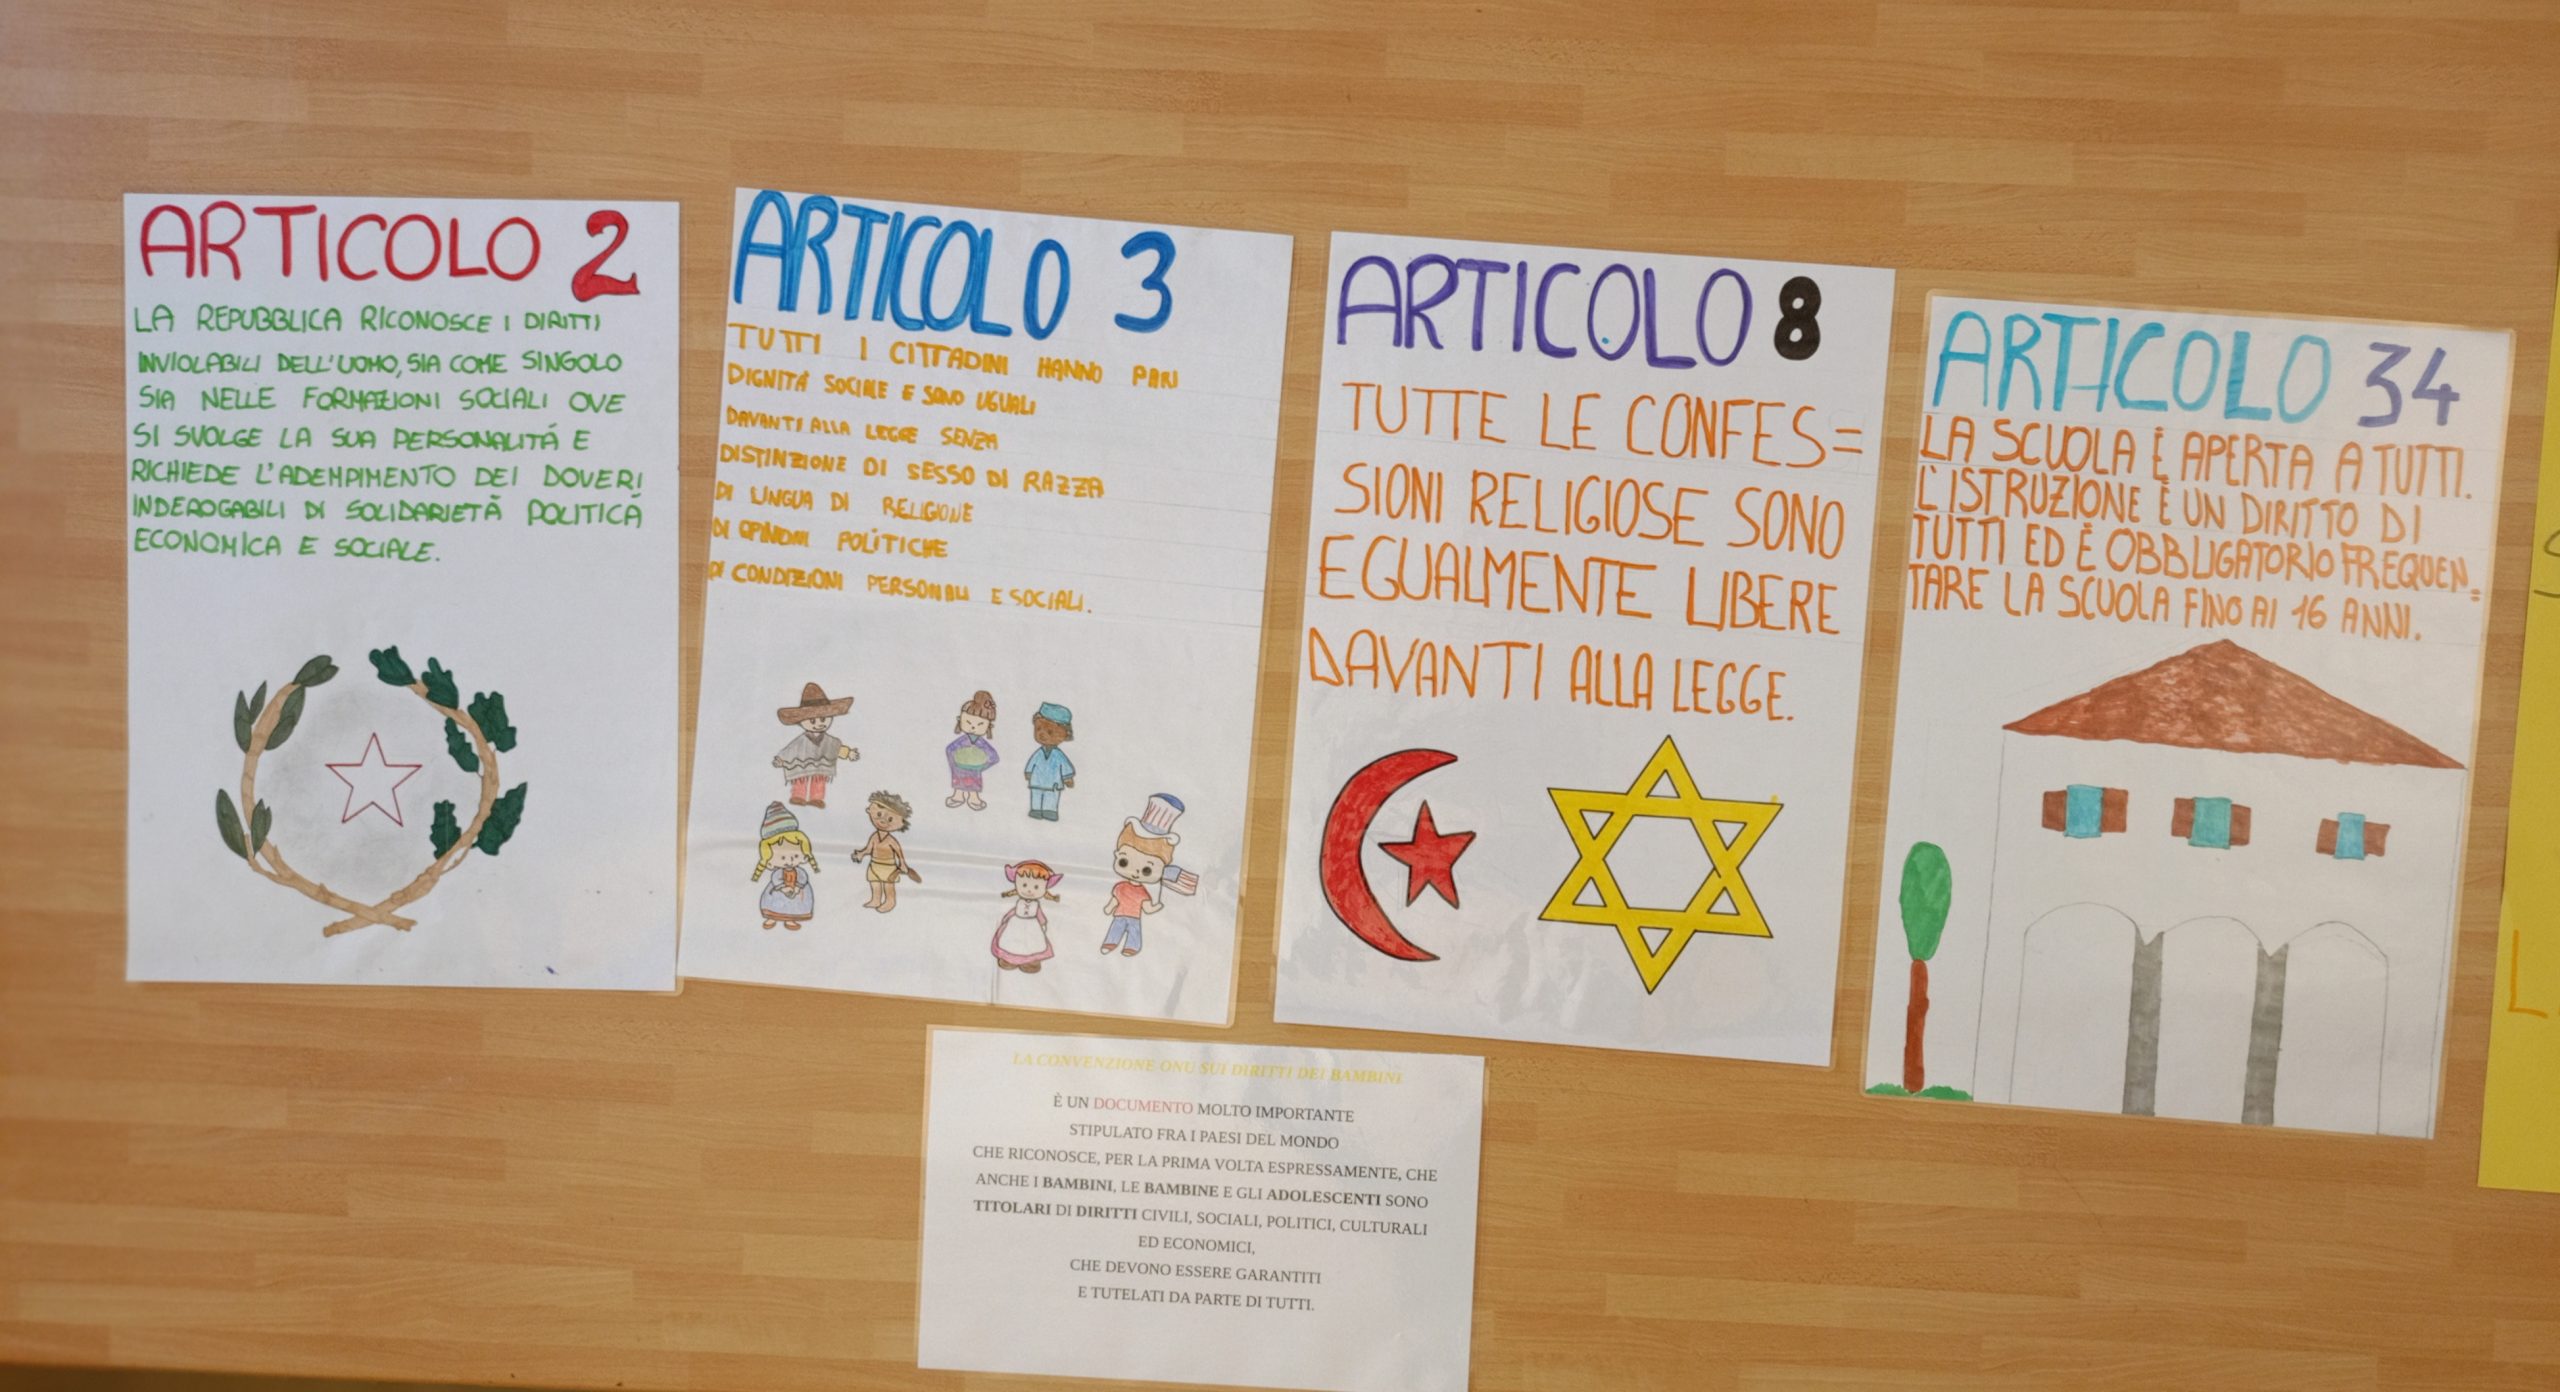 ARTICOLO 2
LA REPUBBLICA RICONOSCE I DIRITTI
INVIOLABILI DELL'UOMO, SIA COME SINGOLO
SIA NELLE FORMAZIONI SOCIALI OVE
SI SVOLGE LA SUA PERSONALITÁ E
RICHIEDE L'ADEMPIMENTO DEI DOVERI
INDEROGABILI DI SOLIDARIETÁ POLITICÁ
ECONOMICA E SOCIALE.
ARTICOLO 3
TUTTI I CITTADINI HANNO PARI
DIGNITÁ SOCIALE E SONO UGUALI
DAVANTI ALLA LEGGE SENZA
DISTINZIONE DI SESSO DI RAZZA
DI LINGUA DI RELIGIONE
DI OPINIONI POLITICHE
DI CONDIZIONI PERSONALI E SOCIALI.
ARTICOLO 8
TUTTE LE CONFES=
SIONI RELIGIOSE SONO
EGUALMENTE LIBERE
DAVANTI ALLA LEGGE.
ARTICOLO 34
LA SCUOLA È APERTA A TUTTI.
L'ISTRUZIONE È UN DIRITTO DI
TUTTI ED È OBBLIGATORIO FREQUEN=
TARE LA SCUOLA FINO AI 16 ANNI.
LA CONVENZIONE ONU SUI DIRITTI DEI BAMBINI
È UN DOCUMENTO MOLTO IMPORTANTE
STIPULATO FRA I PAESI DEL MONDO
CHE RICONOSCE, PER LA PRIMA VOLTA ESPRESSAMENTE, CHE
ANCHE I BAMBINI, LE BAMBINE E GLI ADOLESCENTI SONO
TITOLARI DI DIRITTI CIVILI, SOCIALI, POLITICI, CULTURALI
ED ECONOMICI,
CHE DEVONO ESSERE GARANTITI
E TUTELATI DA PARTE DI TUTTI.